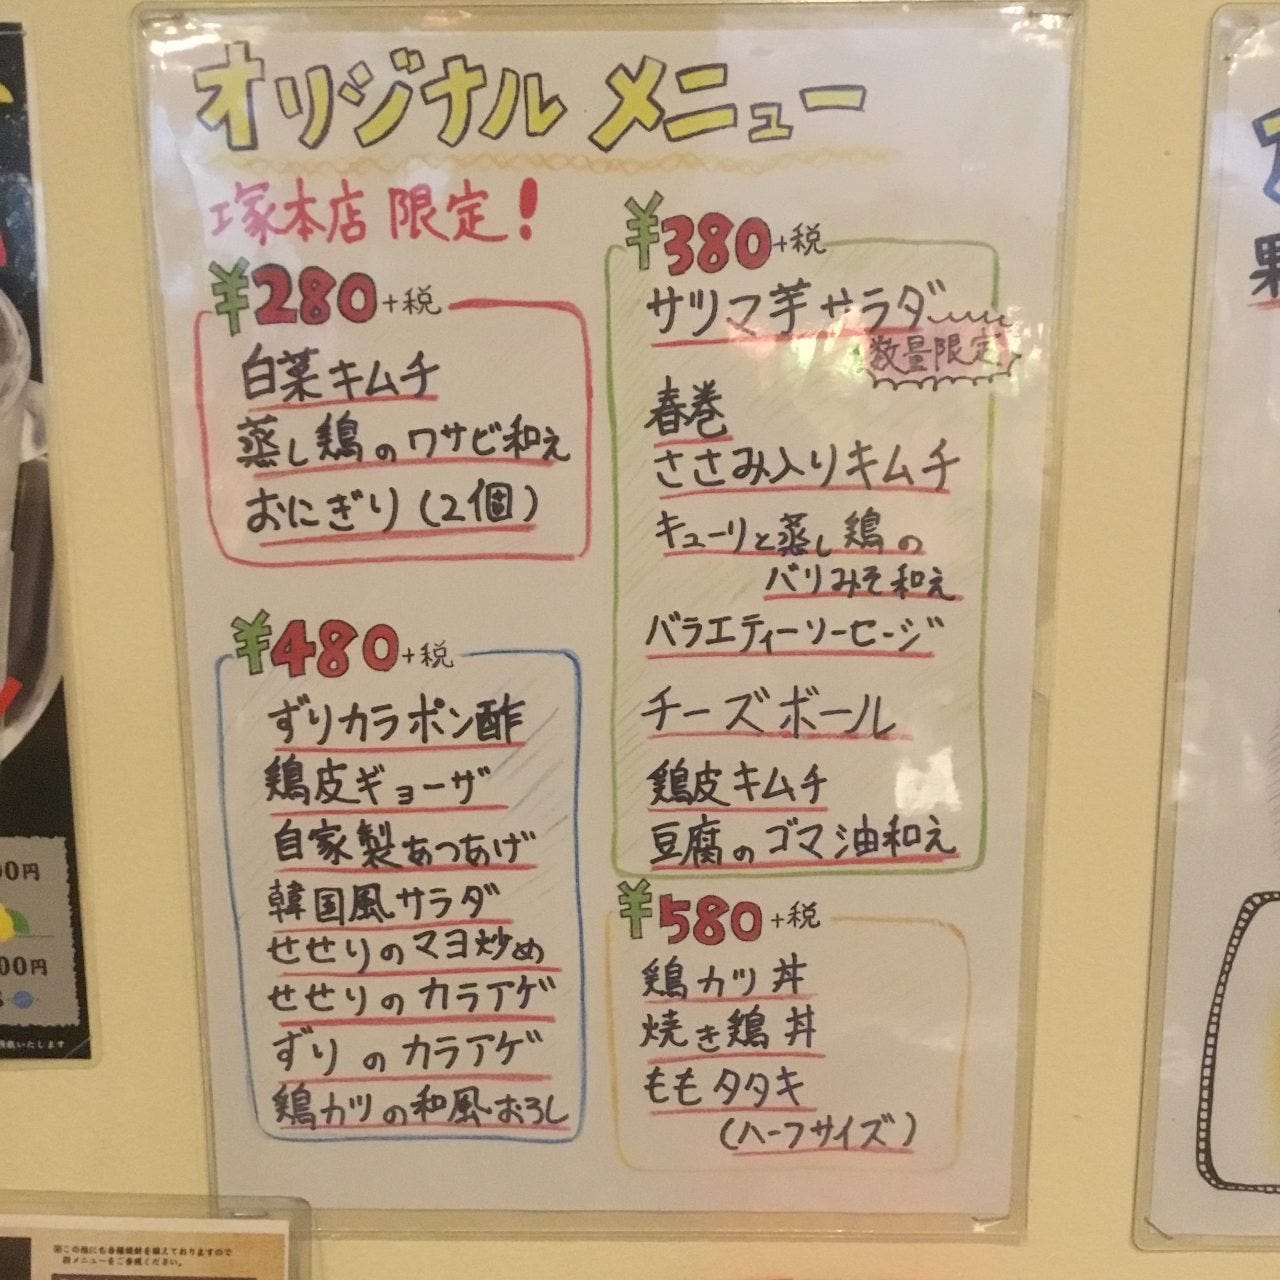 オリジナル メニュー
塚本店 限定!
¥280+税
白菜キムチ
蒸し鶏のワサビ和え
おにぎり(2個)
¥480+税
ずりカラポン酢
鶏皮ギョーザ
自家製あつあげ
韓国風サラダ
せせりのマヨ炒め
せせりのカラアゲ
ずりのカラアゲ
鶏カツの和風おろし
¥380+税
サツマ芋サラダ
数量限定
春巻
ささみ入りキムチ
キューリと蒸し鶏の
バリみそ和え
バラエティーソーセージ
チーズボール
鶏皮キムチ
豆腐のゴマ油和え
¥580+税
鶏カツ丼
焼き鶏丼
ももタタキ
(ハーフサイズ)
00円
00円
頂戴いたします
※この他にも各種焼酎を揃えておりますので
別メニューをご参照ください。